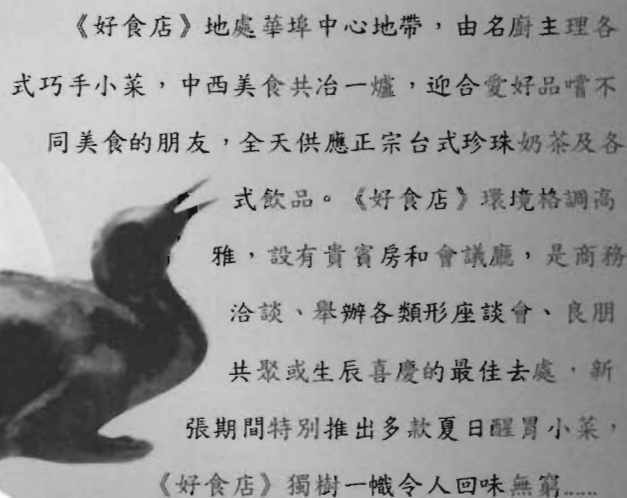 《好食店》地處華埠中心地帶，由名廚主理各
式巧手小菜，中西美食共冶一爐，迎合愛好品嚐不
同美食的朋友，全天供應正宗台式珍珠奶茶及各
式飲品。《好食店》環境格調高
雅，設有貴賓房和會議廳，是商務
洽談、舉辦各類形座談會、良朋
共聚或生辰喜慶的最佳去處，新
張期間特別推出多款夏日醒胃小菜，
《好食店》獨樹一幟令人回味無窮......